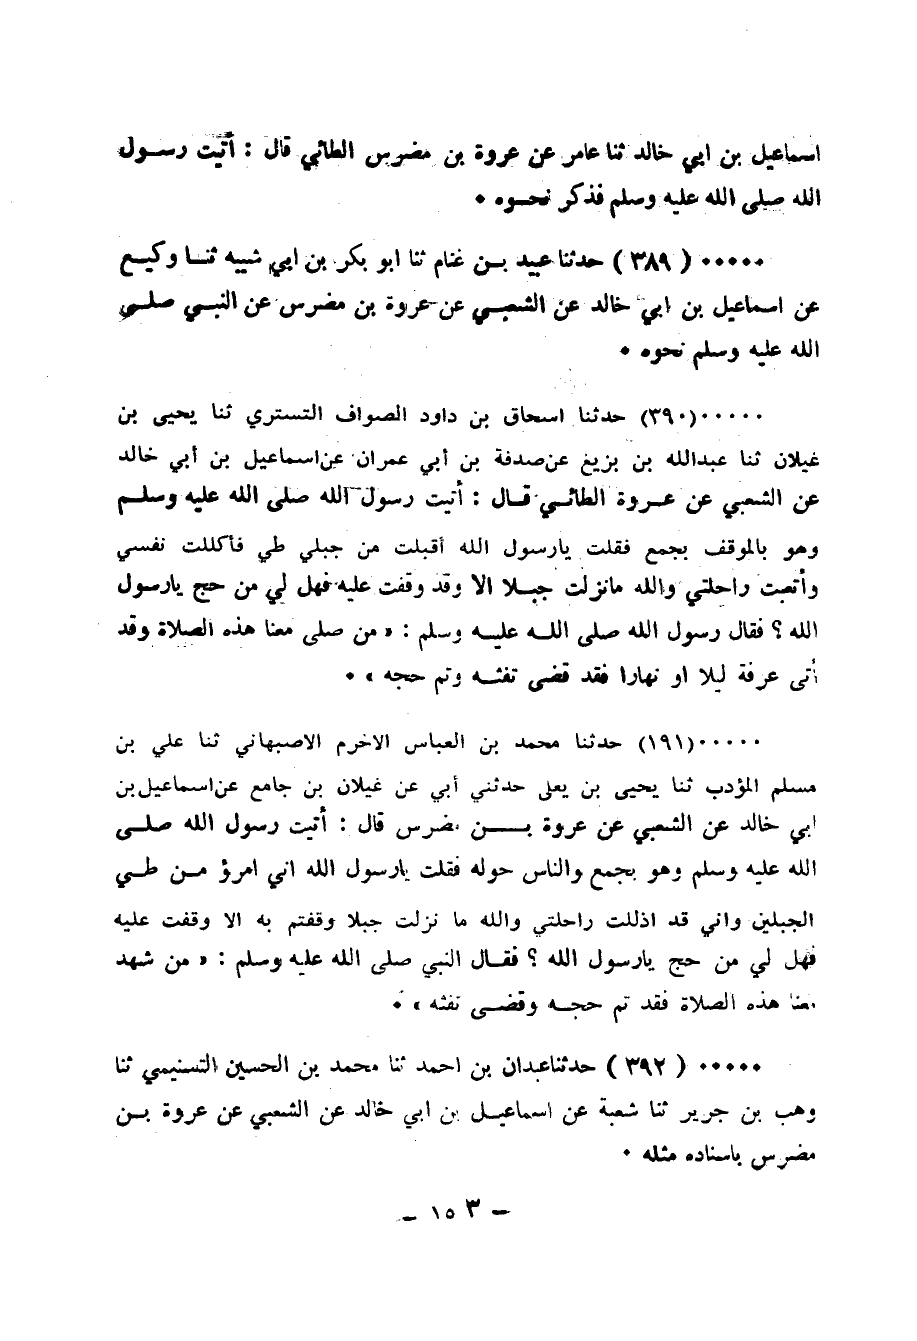 اسماعيل بن ابي خالد ثنا عامر عن عروة بن مضرس الطائي قال : أتيت رسول
الله صلى الله عليه وسلم فذكر نحوه ٠
٠٠٠٠٠ ( ٣٨٩ ) حدثنا عبيد بن غنام ثنا ابو بكر بن ابي شيبه ثنا وكيع
عن اسماعيل بن ابي خالد عن الشعبي عن عروة بن مضرس عن النبي صلى
الله عليه وسلم نحوه ٠
٠٠٠٠٠(٣٩٠) حدثنا اسحاق بن داود الصواف التستري ثنا يحيى بن
غيلان ثنا عبدالله بن بزيغ عن صدفة بن أبي عمران عن اسماعيل بن أبي خالد
عن الشعبي عن عروة الطائي قال : أتيت رسول الله صلى الله عليه وسلم
وهو بالموقف بجمع فقلت يارسول الله أقبلت من جبلي طي فأكللت نفسي
وأتعبت راحلتي والله مانزلت جبلا الا وقد وقفت عليه فهل لي من حج يارسول
الله ؟ فقال رسول الله صلى الله عليه وسلم : « من صلى معنا هذه الصلاة وقد
أتى عرفة ليلا او نهارا فقد قضى تفثه وتم حجه » ٠
٠٠٠٠٠(١٩١) حدثنا محمد بن العباس الاخرم الاصبهاني ثنا علي بن
مسلم المؤدب ثنا يحيى بن يعلى حدثني أبي عن غيلان بن جامع عن اسماعيل بن
ابي خالد عن الشعبي عن عروة بن مضرس قال : أتيت رسول الله صلى
الله عليه وسلم وهو بجمع والناس حوله فقلت يارسول الله اني امرؤ من طي
الجبلين واني قد اذللت راحلتي والله ما نزلت جبلا وقفتم به الا وقفت عليه
فهل لي من حج يارسول الله ؟ فقال النبي صلى الله عليه وسلم : « من شهد
معنا هذه الصلاة فقد تم حجه وقضى تفثه » ٠
٠٠٠٠٠ ( ٣٩٢ ) حدثنا عبدان بن احمد ثنا محمد بن الحسين التسنيمي ثنا
وهب بن جرير ثنا شعبة عن اسماعيل بن ابي خالد عن الشعبي عن عروة بن
مضرس باسناده مثله ٠
– ١٥٣ –